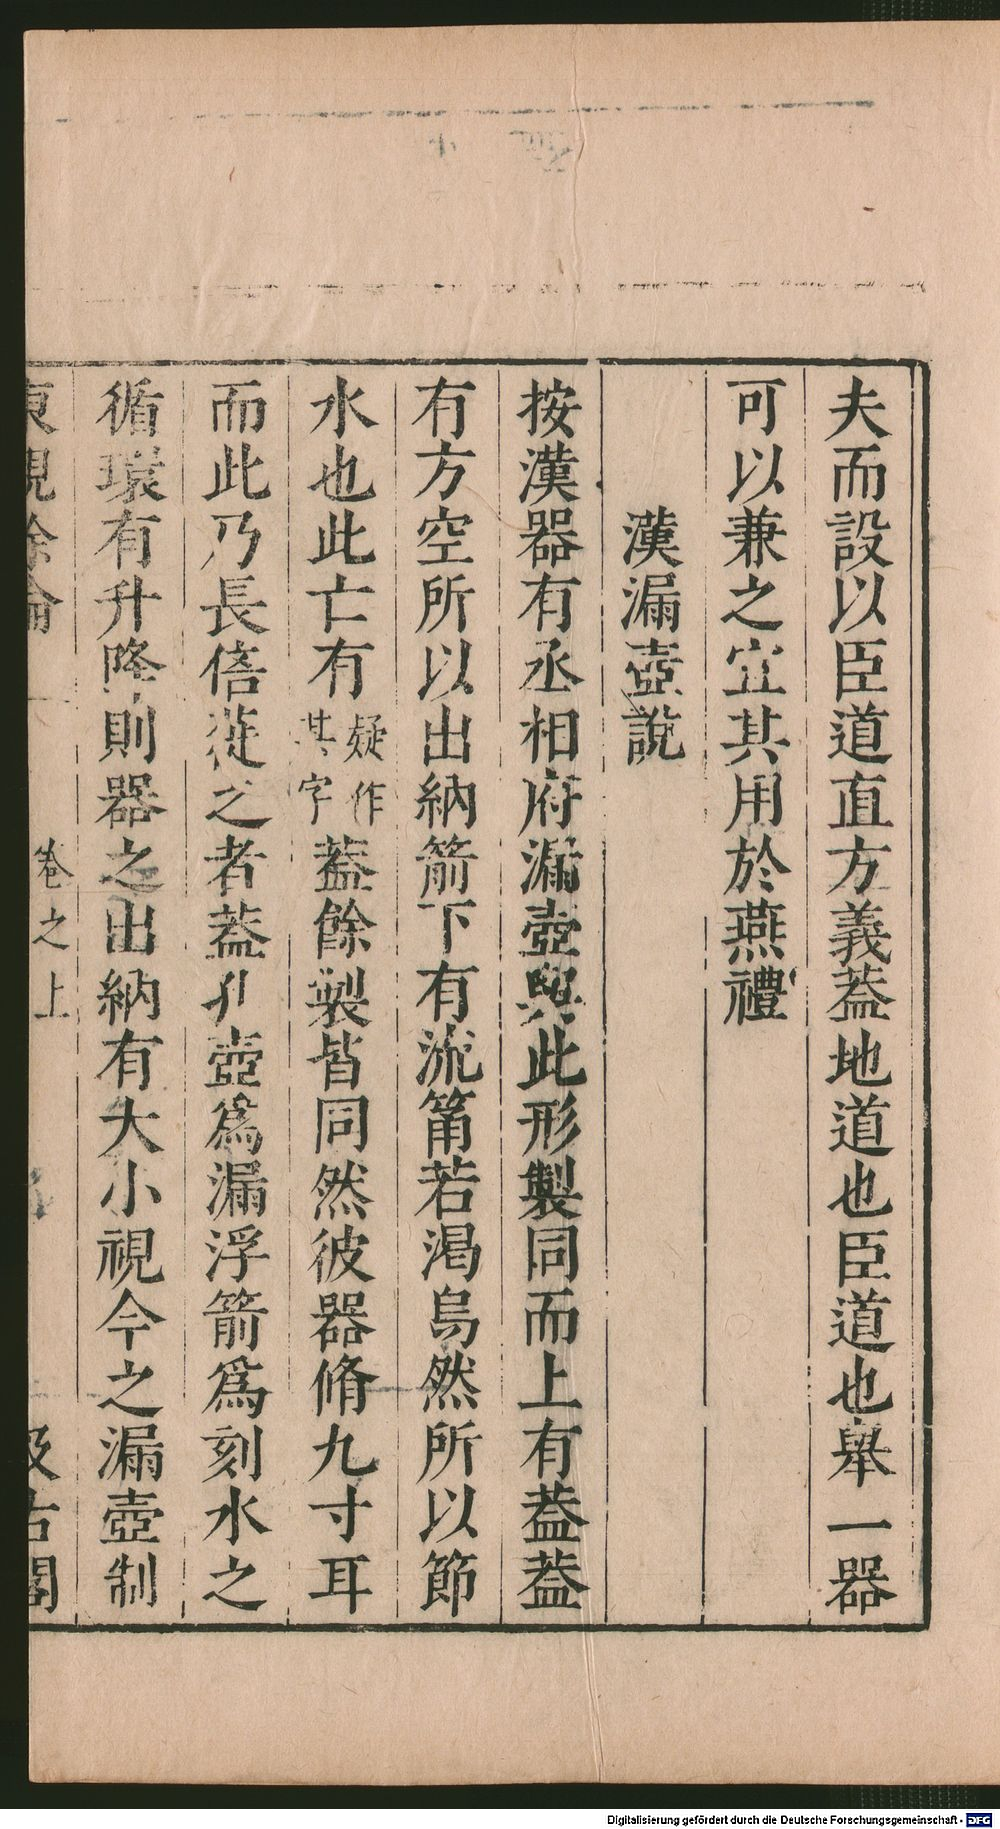 夫而設以臣道直方義葢地道也臣道也舉一器
可以兼之宜其用於燕禮
漢漏壺說
按漢器有丞相府漏壺與此形製同而上有葢葢
有方空所以出納箭下有流筩若渴烏然所以節
水也此亡有疑作其字葢餘製皆同然彼器脩九寸耳
而此乃長倍蓰之者葢孔壺爲漏浮箭爲刻水之
循環有升降則器之出納有大小視今之漏壺制
東觀余論
卷之上
汲古閣
Digitalisierung gefördert durch die Deutsche Forschungsgemeinschaft - DFG